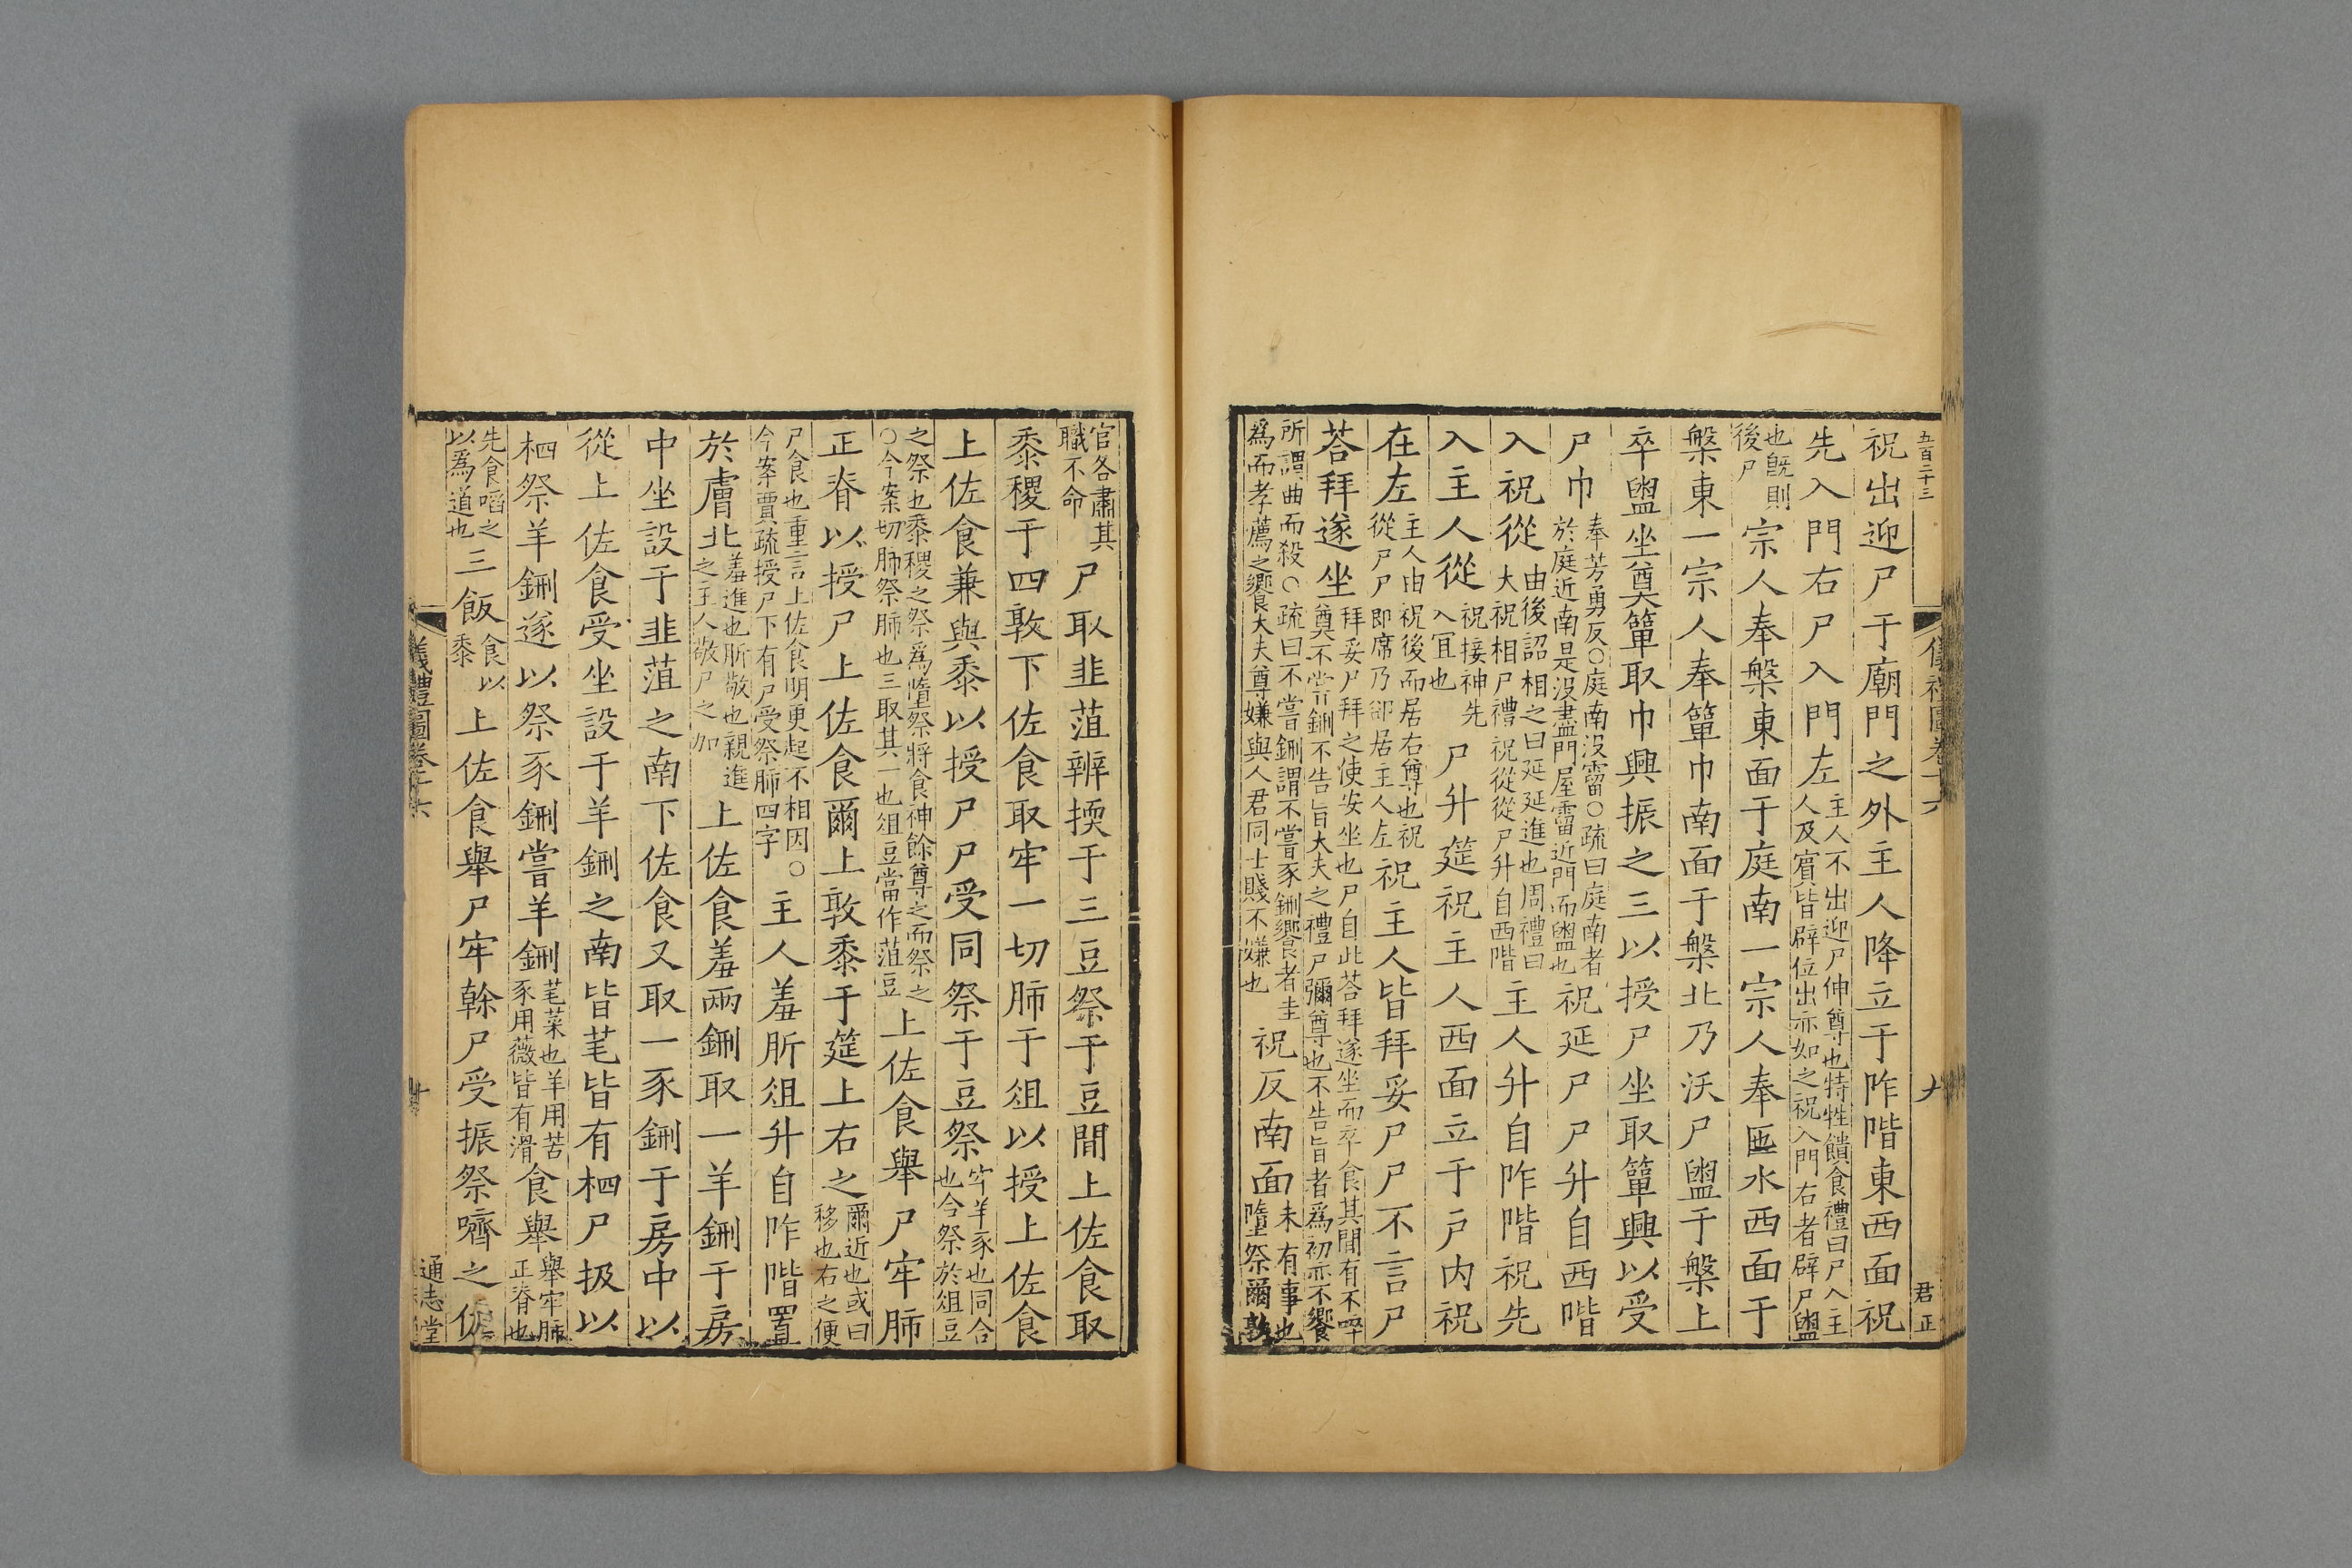 五百二十三
儀禮圖卷十六
九
君正
祝出迎尸于廟門之外主人降立于阼階東西面祝
先入門右尸入門左主人不出迎尸伸尊也特牲饋食禮曰尸入主人及賓皆辟位出亦如之祝入門右者辟尸盥
也旣則後尸宗人奉槃東面于庭南一宗人奉匜水西面于
槃東一宗人奉簞巾南面于槃北乃沃尸盥于槃上
卒盥坐奠簞取巾興振之三以授尸坐取簞興以受
尸巾奉芳勇反○庭南沒霤○疏曰庭南者於庭近南是沒盡門屋霤近門而盥也祝延尸尸升自西階
入祝從由後詔相之曰延延進也周禮曰大祝相尸禮祝從從尸升自西階主人升自阼階祝先
入主人從祝接神先入宜也尸升筵祝主人西面立于戶內祝
在左主人由祝後而居右尊也祝從尸尸即席乃卻居主人左祝主人皆拜妥尸尸不言尸
荅拜遂坐拜妥尸拜之使安坐也尸自此荅拜遂坐而卒食其閒有不啐奠不嘗鉶不告旨大夫之禮尸彌尊也不告旨者爲初亦不饗
所謂曲而殺○疏曰不嘗鉶謂不嘗豕鉶饗者圭爲而孝薦之饗大夫尊嫌與人君同士賤不嫌也祝反南面未有事也墮祭爾敦
官各肅其職不命尸取韭菹辨擩于三豆祭于豆閒上佐食取
黍稷于四敦下佐食取牢一切肺于俎以授上佐食
上佐食兼與黍以授尸尸受同祭于豆祭牢羊豕也同合也合祭於俎豆
之祭也黍稷之祭爲墮祭將食神餘尊之而祭之○今案切肺祭肺也三取其一也俎豆當作菹豆上佐食舉尸牢肺
正脊以授尸上佐食爾上敦黍于筵上右之爾近也或曰移也右之便
尸食也重言上佐食明更起不相因○今案賈疏授尸下有尸受祭肺四字主人羞肵俎升自阼階置
於膚北羞進也肵敬也親進之主人敬尸之加上佐食羞兩鉶取一羊鉶于房
中坐設于韭菹之南下佐食又取一豕鉶于房中以
從上佐食受坐設于羊鉶之南皆芼皆有柶尸扱以
柶祭羊鉶遂以祭豕鉶嘗羊鉶芼菜也羊用苦豕用薇皆有滑食舉舉牢肺正脊也
先食啗之以爲道也三飯食以黍上佐食舉尸牢幹尸受振祭嚌之佐
儀禮圖卷十六
十
通志堂